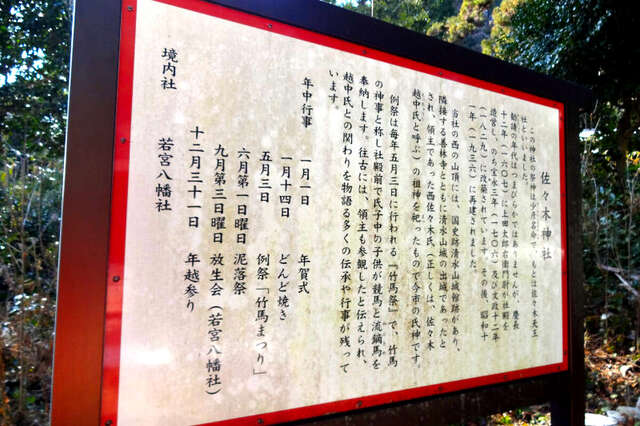 佐々木神社
この神社の祭神は少彦名命で、もとは佐々木天王
社といいました。
勧請の年代はつまびらかではありませんが、慶長
十二年(一六〇七)に上田太郎右衛門尉が社殿を
造営し、のち宝永三年(一七〇六)及び文政十二年
(一八二九)に改築されています。その後、昭和十
一年(一九三六)に再建されました。
当社の西の山頂には、国史跡清水山城館跡があり、
隣接する善林寺とともに清水山城の出城であったと
され、領主であった西佐々木氏(正しくは、佐々木
越中氏と呼ぶ)の祖神を祀ったもので今市の氏神です。
例祭は毎年五月三日に行われる「竹馬祭」で、竹馬
の神事と称し社殿前で氏子中の子供が競馬と流鏑馬を
奉納します。往古には、領主も参観したと伝えられ、
越中氏との関わりを物語る多くの伝承や行事が残って
います。
年中行事 一月一日 年賀式
一月十四日 どんど焼き
五月三日 例祭「竹馬まつり」
六月第一日曜日 泥落祭
九月第三日曜日 放生会(若宮八幡社)
十二月三十一日 年越参り
境内社 若宮八幡社